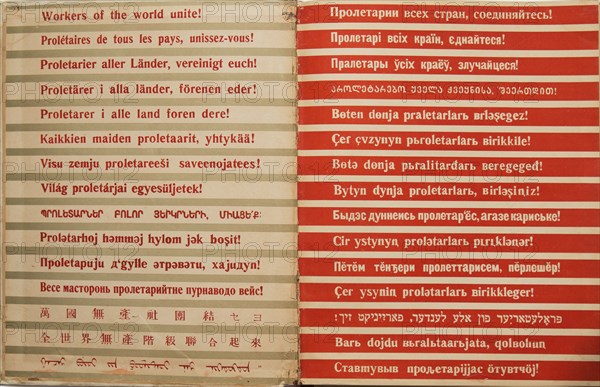 Workers of the world unite!
Prolétaires de tous les pays, unissez-vous!
Proletarier aller Länder, vereinigt euch!
Proletärer i alla länder, förenen eder!
Proletarer i alle land foren dere!
Kaikkien maiden proletaarit, yhtykää!
Visu zemju proletareeši saveenojatees!
Világ proletárjai egyesüljetek!
ՊՐՈԼԵՏԱՐՆԵՐ ԲՈԼՈՐ ՅԵՐԿՐՆԵՐԻ, ՄԻԱՑԵ՛Ք։
Proletarhoj həmməj hylom jək boşit!
Проletapuju д'gylle
Весе масторонь пролетарийтне пурнаводо вейс!
萬國無產社團結セヨ
全世界無產階級聯合起來
Пролетарии всех стран, соединяйтесь!
Пролетарі всіх країн, єднайтеся!
Пралетары ўсіх краёў, злучайцеся!
ᲞᲠᲝᲚᲔᲢᲐᲠᲔᲑᲝ ᲧᲕᲔᲚᲐ ᲥᲕᲔᲧᲜᲘᲡᲐ, ᲨᲔᲔᲠᲗᲓᲘᲗ!
Bөten dөnja praletarlarь brləşegez!
Çer çvzynyn pьroletarlarь birikkile!
Bөtə dөnja pьralitardarь beregeged!
Bytyn dynja proletarlarь, birləşiniz!
Быдэс дуннеись пролетар'ёс, агазе кариське!
Cir ystynyn prolətarlarь pırıklənər!
Пӗтӗм тӗнҫери пролеттарисем, пӗрлешӗр!
Çer ysynin prolətarlarь birikkleger!
פּראָלעטאַריער פון אַלע לענדער, פאַראייניקט זיך!
Barь dojdu вьralьtaarьjata, qolboһuŋ
Ставтывыв пролетариjjас ӧтувтчӧj!